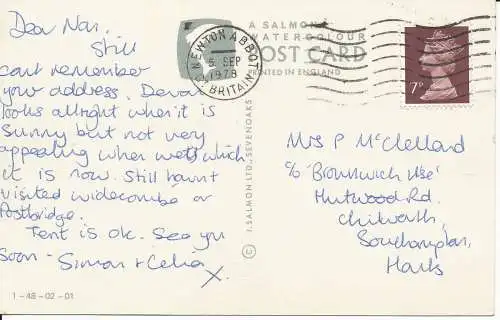 Dear Nan,
Still
cant remember
your address. Devon
looks allright when it is
sunny but not very
appealing when wet which
it is now. Still havnt
visited widecombe or
Postbridge.
Tent is ok. See you
soon - Simon + Celia
X
1-48-02-01
© J. SALMON LTD., SEVENOAKS
A SALMON
WATERCOLOUR
POST CARD
PRINTED IN ENGLAND
NEWTON ABBOT
5 SEP
1978
BRITAIN
7P
Mrs P McClelland
c/o 'Brunswich Hse'
Hutwood Rd.
Chilworth,
Southampton,
Hants